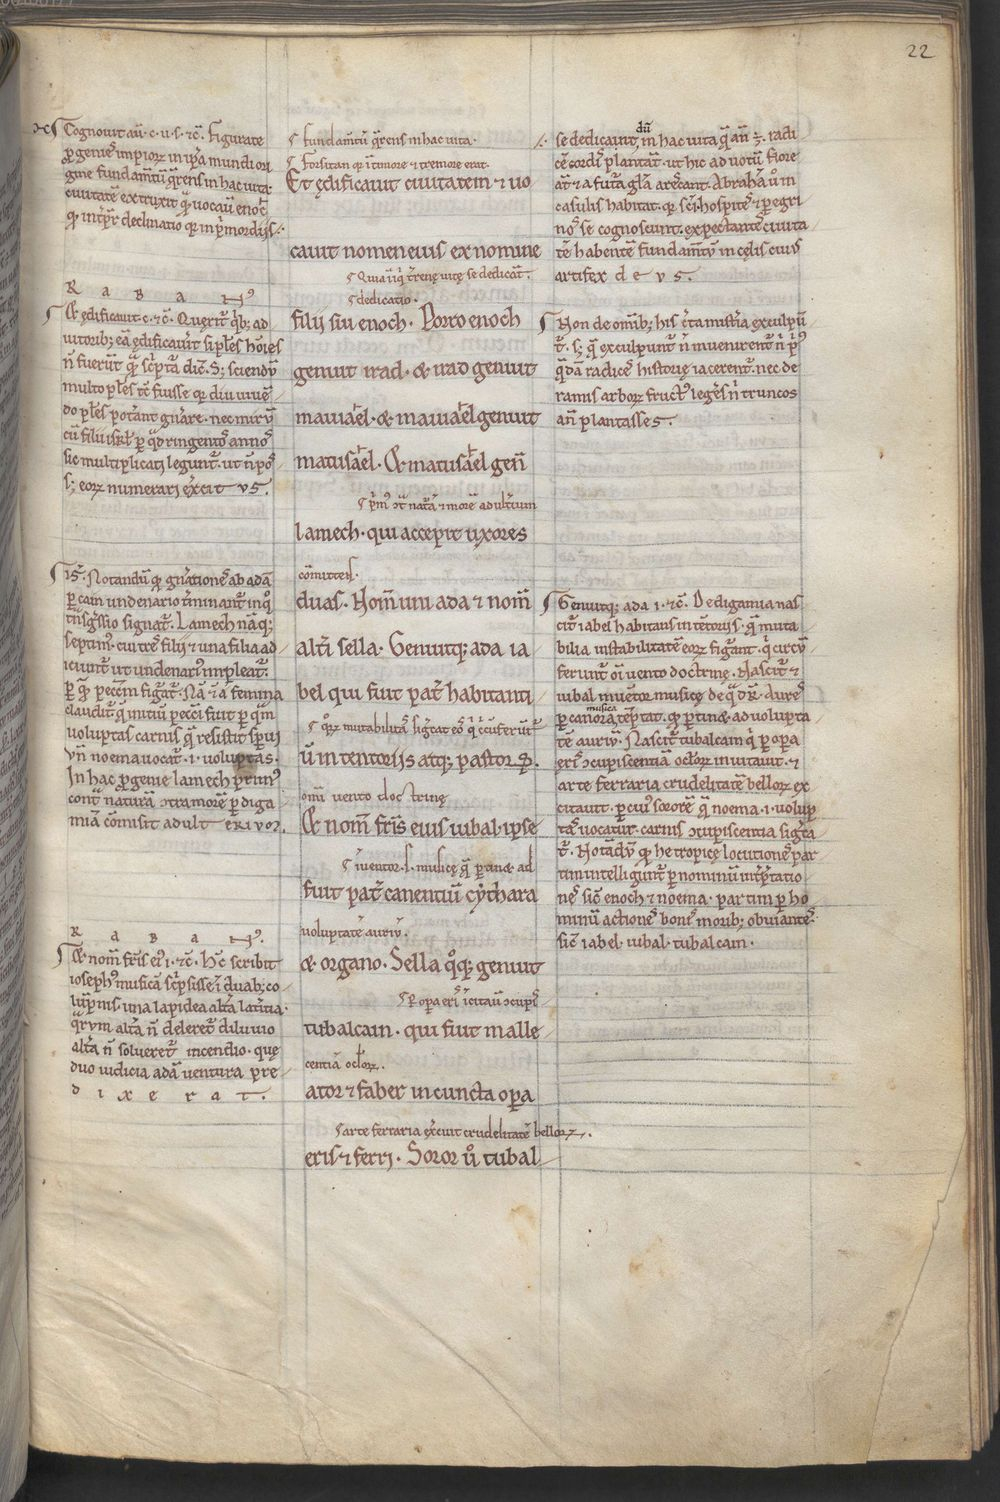 22
Cognouit aū. c. u. s. ⁊c̄. Figurate
ꝓgenies impioꝝ in ip̄a mundi ori
gine fundam̄tū q̄rens in hac uita
ciuitatē extruxit q̄ uocaū enoch
dedicatio. ꝶ.
R A B A N⁹
Et ędificauit. c. ⁊c̄. Querit̄ q̄b; ad
iutorib; eā ędificauit si pl̄es hoīes
n̄ fuer̄t q̄ sc̄ptā dic̄. S; sciendū
multo pl̄es tc̄ fuisse
do pl̄es potant gn̄are. nec mirū
cū filii isrl̄ ꝑ q̄dringentos annos
sic multiplicati legunt̄. ut n̄ pos
s; eoꝝ numerari exercit v S.
is. Notandū ꝙ gn̄ationes ab adā
ꝑ cain undenario t̄minant̄ in q̊
tn̄sgssio signat̄. Lamech naq;
septim⁹. cui tres filii ⁊ una filia ad
iciunt̄ ut undenari⁹ impleat̄.
ꝑ q̄ peccm̄ figat̄. Nā ⁊ a femina
claudit̄ q̄ initiū pecci fuit ꝑ q̄m
uoluptas carnis q̄ resistit sp̄ui
Vn̄ noema uocat̄. i. uoluptas.
In hac ꝓgenie lamech prim⁹
contͣ naturā ↄtra morē ꝑ diga
miā cōmisit adult eRi vꝝ.
R A B A N⁹.
Et nom̄ fr̄is ei⁹ i. ⁊c̄. Hc̄ scribit
ioseph⁹ musicā sc̄psisse ī duab; co
lūpnis. una lapidea alt̄a lat̄icia.
q̄rvm alt̄a n̄ deleret̄ diluuio
alt̄a n̄ solueret̄ incendio. quę
duo iudicia adā uentura pre
d i x e r a t.
fundam̄tū q̄rens in hac uita.
Forsitan ꝙ ī timore ⁊ tremore erat.
Et ędificauit ciuitatem ⁊ uo
cauit nomen eius ex nomine
Quia uiti t̄renę uitę se dedicat̄.
dedicatio.
filii sui enoch. Porro enoch
genuit irad. & irad genuit
mauiael. & mauiael genuit
matusael. & matusael gen̄
p̄m⁹ ↄͣ natāꝫ ⁊ morē adultium
lamech. qui accepit uxores
cōmittens.
duas. Nom̄ uni ada ⁊ nom̄
alt̄i sella. Genuitq; ada ia
bel qui fuit pat̄ habitanti
q̊ꝝ mutabilitas sig̅t eos q̄ circūferūt̄
ū in tentoriis atq; pastoꝝ.
omī uento doctrinę
Et nom̄ fr̄is eius iubal. ipse
inuentor. s. musicę q̄ ꝑtinet ad
fuit pat̄ canentiū cẏthara
voluptatē auriū.
& organo. Sella q̊q; genuit
ꝑ opa eris īcitaū ↄcupis
tubalcain. qui fuit malle
centiā oclōꝝ.
ator ⁊ faber in cuncta opa
arte ferraria exercuit crudelitatē belloꝝ.
eris ⁊ ferri. Soror u̅ tubal
se dedicaint dū in hac uita q̄ an̄ radi
cē cordis plantāt. ut hic ad uotū flore
at̄ ⁊ a futa glā arescant. Abrahā u̅ in
casulis habitat. ꝙ sc̄i hospites ⁊ ꝑegri
nos se cognoscunt. expectantes ciuita
tē habentē fundam̄tū in cęlis cuis
artifex d e v s.
Non de omīb; his c̄ta mistīa exculpū
t̄. s; q̄ exculpunt̄ n̄ inuenirent̄ n̄ p̄⁹
q̄dā radices historię iacerent̄. nec de
ramis arborꝝ fruct⁹ leges n̄ truncos
an̄ plantasse s.
Genuitq; ada i. ⁊c̄. De digamia nas
cit̄ iabel habitans in tētoriis. q̄ muta
bilia instabilitatē eoꝝ figant. q̄ circū
ferunt̄ oī uento doctrinę. Nascit̄ ⁊
iubal inuētor musicę de q̄ dr̄. Aures
ꝑ canorā musicā tēptat. ꝙ ꝑtinet ad uolupta
tē auriū. Nascit̄ tubalcain q̄ ꝑ opa
eris ↄcupiscentiā oclōꝝ inuitauit. ⁊
arte ferraria crudelitatē belloꝝ ex
citauit. ꝑ cui⁹ sororē q̄ noema. i. volup
tas uocatur. carnis ↄcupiscentia sig̅ca
t̄. Notādū ꝙ he tropicę locutiones par
tim intelligunt̄ ꝑ nominū int̄p̄tatio
nes sic̄ enoch ⁊ noema. partim ꝑ ho
minū actiones bonis morib; obuiantes.
sic̄ iabel. iubal. tubalcain.